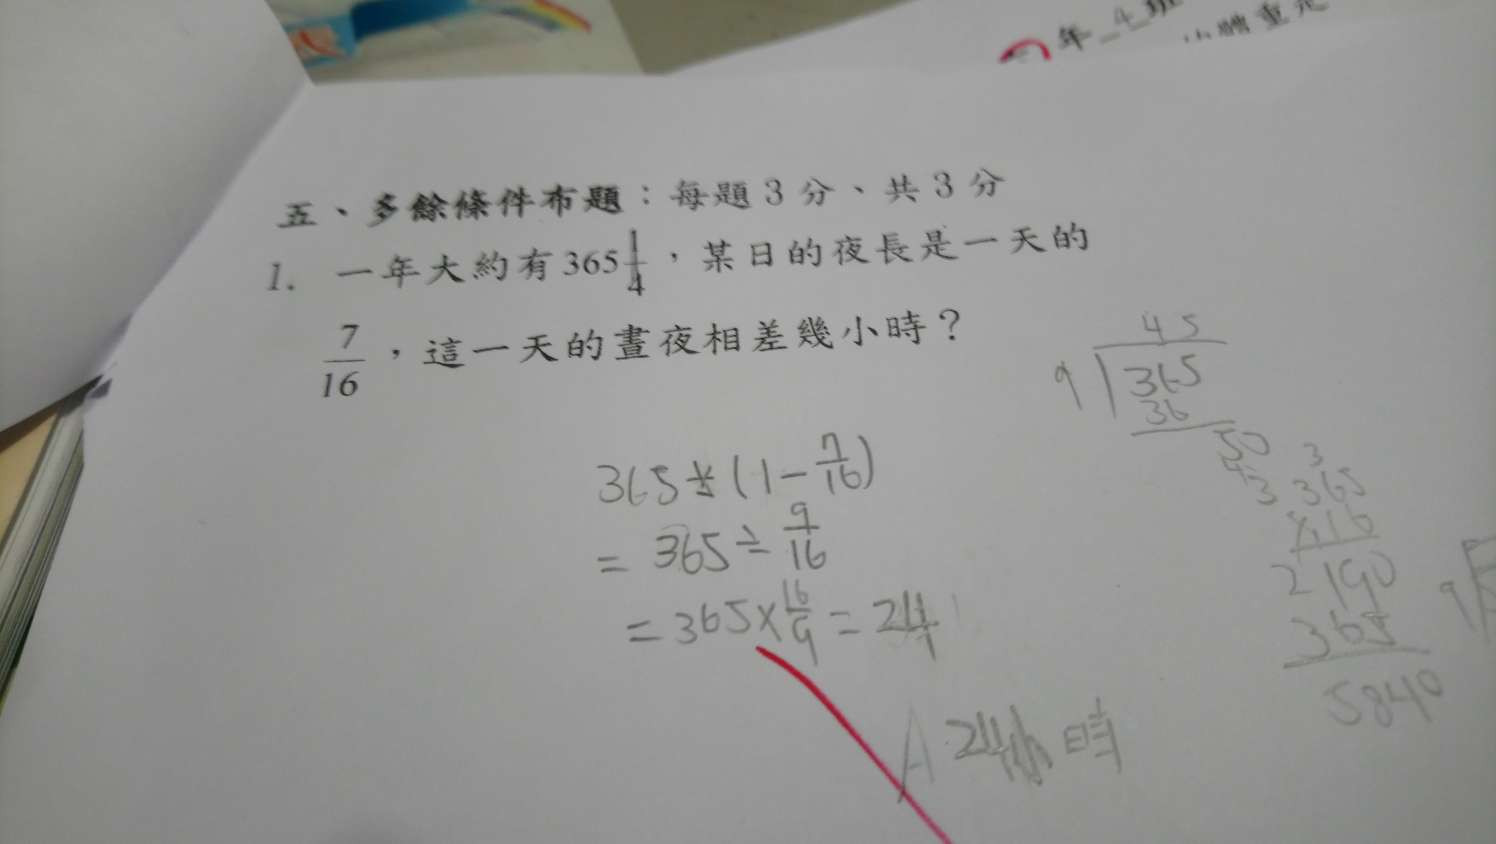 年 4 班
五、多餘條件布題：每題3分、共3分
1. 一年大約有365 1/4，某日的夜長是一天的
7/16，這一天的晝夜相差幾小時？
365÷(1-7/16)
= 365÷9/16
= 365×16/9 = 24
A 24小時
45
9 365
36
50
3
365
×16
2190
365
5840
9